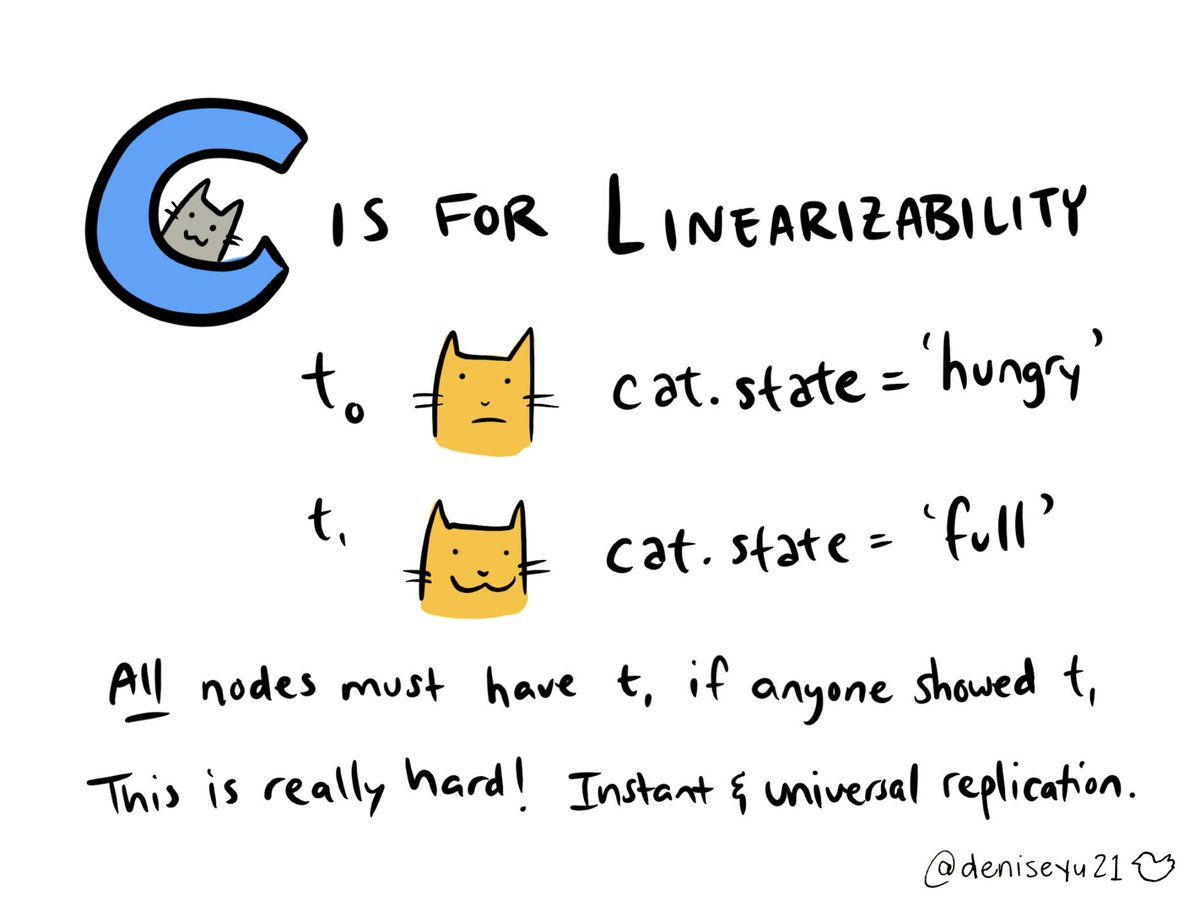 C IS FOR LINEARIZABILITY
t₀ cat.state = 'hungry'
t₁ cat.state = 'full'
All nodes must have t₁ if anyone showed t₁
This is really hard! Instant & universal replication.
@deniseyu21